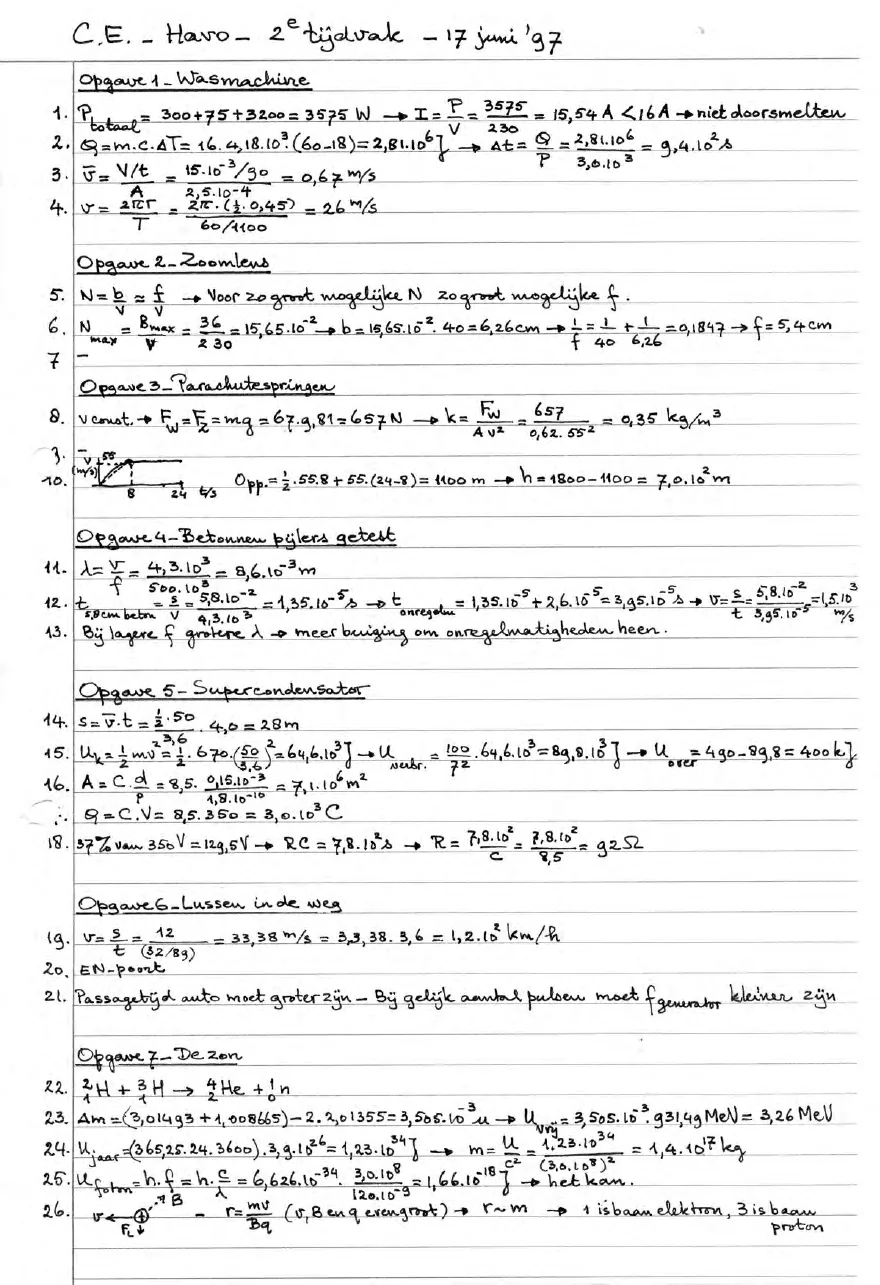 C.E. - Havo - 2e tijdvak - 17 juni '97
Opgave 1 - Wasmachine
1. P_totaal = 300+75+3200 = 3575 W → I = P/V = 3575/230 = 15,54 A < 16 A → niet doorsmelten
2. Q = m.c.ΔT = 16.4,18.10³.(60-18) = 2,81.10⁶ J → Δt = Q/P = 2,81.10⁶/3,0.10³ = 9,4.10² s
3. v̅ = (V/t)/A = (15.10⁻³/90)/(2,5.10⁻⁴) = 0,67 m/s
4. v = 2πr/T = 2π.(½.0,45)/(60/1100) = 26 m/s
Opgave 2 - Zoomlens
5. N = b/v ≈ f/v → Voor zo groot mogelijke N zo groot mogelijke f.
6. N_max = B_max/V = 36/230 = 15,65.10⁻² → b = 15,65.10⁻².40 = 6,26 cm → 1/f = 1/40 + 1/6,26 = 0,1847 → f = 5,4 cm
7 -
Opgave 3 - Parachutespringen
8. v const. → F_w = F_z = mg = 67.9,81 = 657 N → k = F_w/Av² = 657/0,62.55² = 0,35 kg/m³
9. v 55
10. (m/s) 8 24 t/s Opp. = ½.55.8 + 55.(24-8) = 1100 m → h = 1800 - 1100 = 7,0.10² m
Opgave 4 - Betonnen pijlers getest
11. λ = v/f = 4,3.10³/500.10³ = 8,6.10⁻³ m
12. t_5,8cm beton = s/v = 5,8.10⁻²/4,3.10³ = 1,35.10⁻⁵ s → t_onregelm = 1,35.10⁻⁵ + 2,6.10⁻⁵ = 3,95.10⁻⁵ s → v = s/t = 5,8.10⁻²/3,95.10⁻⁵ = 1,5.10³ m/s
13. Bij lagere f grotere λ → meer buiging om onregelmatigheden heen.
Opgave 5 - Supercondensator
14. s = v̅.t = (½.50/3,6).4,0 = 28 m
15. U_k = ½mv² = ½.670.(50/3,6)² = 64,6.10³ J → U_verbr. = 100/72.64,6.10³ = 89,8.10³ J → U_over = 490 - 89,8 = 400 kJ
16. A = C.d/p = 8,5.0,15.10⁻³/1,8.10⁻¹⁰ = 7,1.10⁶ m²
Q = C.V = 8,5.350 = 3,0.10³ C
18. 37% van 350 V = 129,5 V → RC = 7,8.10² s → R = 7,8.10²/C = 7,8.10²/8,5 = 92 Ω
Opgave 6 - Lussen in de weg
19. v = s/t = 12/(32/89) = 33,38 m/s = 33,38.3,6 = 1,2.10² km/h
20. EN-poort
21. Passagetijd auto moet groter zijn - Bij gelijk aantal pulsen moet f_generator kleiner zijn
Opgave 7 - De zon
22. ²₁H + ³₁H → ⁴₂He + ¹₀n
23. Δm = (3,01493 + 1,008665) - 2.2,01355 = 3,505.10⁻³ u → U_vrij = 3,505.10⁻³.931,49 MeV = 3,26 MeV
24. U_jaar = (365,25.24.3600).3,9.10²⁶ = 1,23.10³⁴ J → m = U/c² = 1,23.10³⁴/(3,0.10⁸)² = 1,4.10¹⁷ kg
25. U_foton = h.f = h.c/λ = 6,626.10⁻³⁴.3,0.10⁸/120.10⁻⁹ = 1,66.10⁻¹⁸ J → het kan.
26. v ← ⊕ B F_L↓ - r = mv/Bq (v, B en q even groot) → r ~ m → 1 is baan elektron, 3 is baan proton